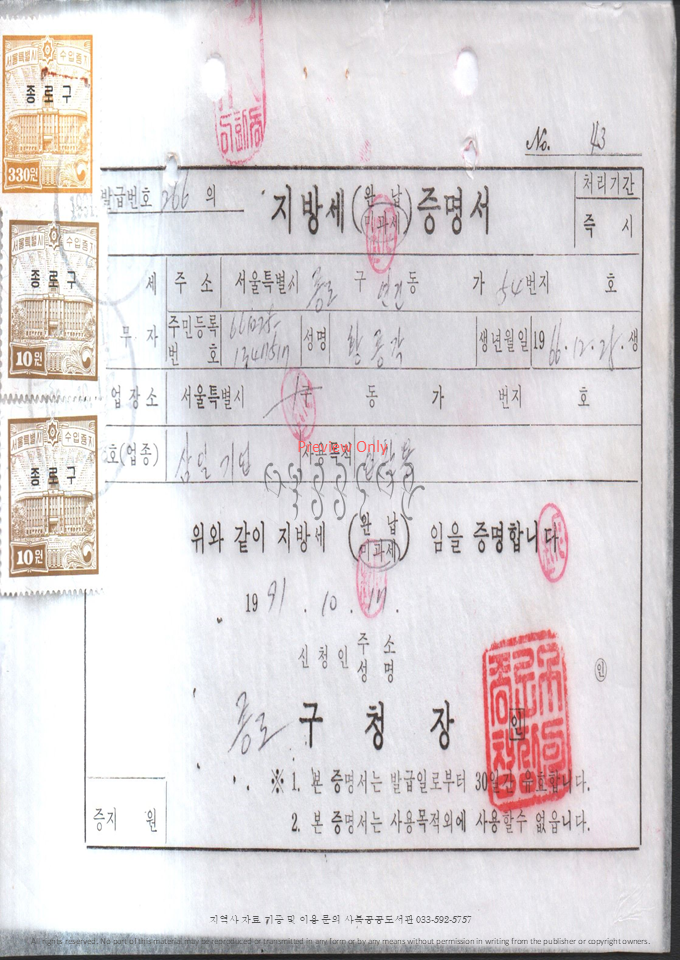 서울특별시 수입증지
종로구
330원
서울특별시 수입증지
종로구
10원
서울특별시 수입증지
종로구
10원
No. 43
발급번호 266 의
지방세 (완납 미과세) 증명서
처리기간
즉 시
세 주소 서울특별시 종로 구 연건동 가 54번지 호
무자 주민등록번호 성명 황 생년월일 1966.12.28.생
업장소 서울특별시 구 동 가 번지 호
호(업종) 삼일기업 사용목적
Preview Only
위와 같이 지방세 (완납 미과세) 임을 증명합니다
1991.10.17.
신청인 주소
성명
인
종로 구청장 인
※ 1. 본 증명서는 발급일로부터 30일간 유효합니다.
2. 본 증명서는 사용목적외에 사용할수 없읍니다.
증지 원
지역사 자료 기증 및 이용 문의 사북공공도서관 033-592-5757
All rights reserved. No part of this material may be reproduced or transmitted in any form or by any means without permission in writing from the publisher or copyright owners.